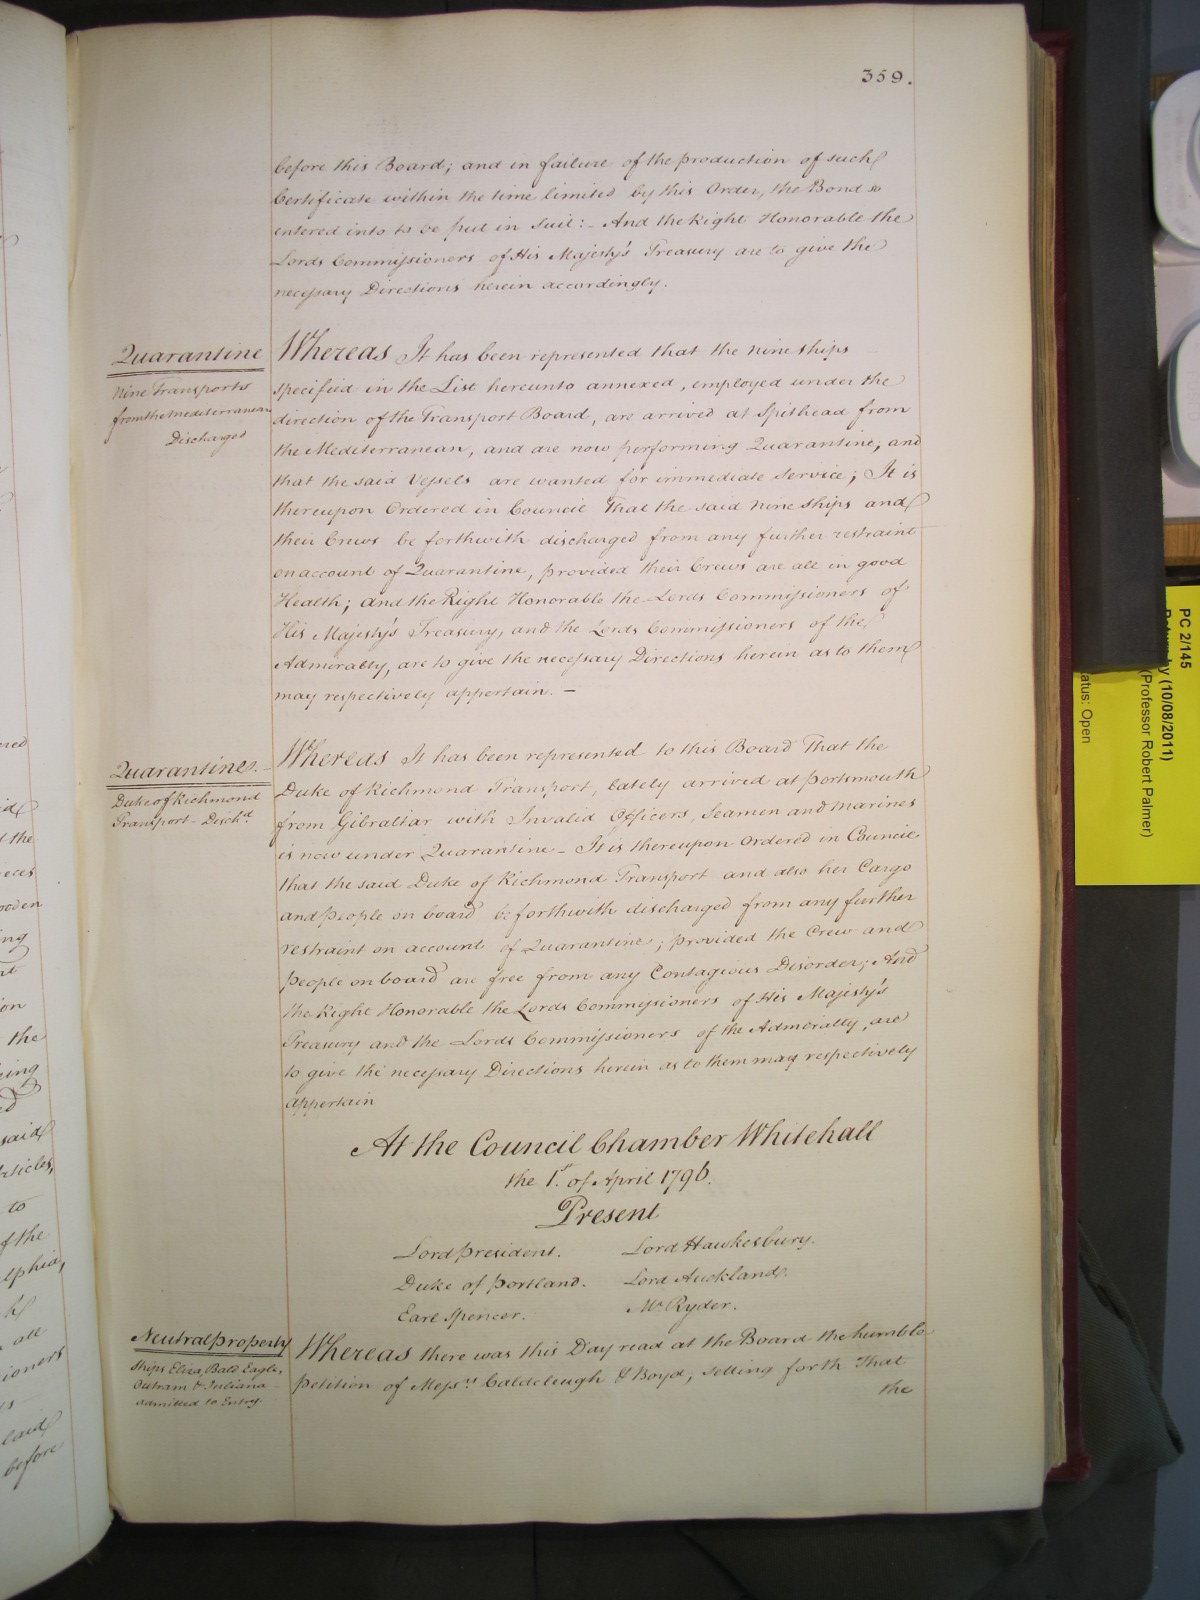 359.
before this Board; and in failure of the production of such
Certificate within the time limited by this Order, the Bond so
entered into to be put in Suit:- And the Right Honorable the
Lords Commissioners of His Majesty's Treasury are to give the
necessary Directions herein accordingly.
Quarantine
Nine Transports
from the Mediterranean
Discharged
Whereas It has been represented that the nine ships
specified in the List hereunto annexed, employed under the
direction of the Transport Board, are arrived at Spithead from
the Mediterranean, and are now performing Quarantine, and
that the said Vessels are wanted for immediate Service; It is
thereupon Ordered in Council That the said nine ships and
their Crews be forthwith discharged from any further restraint
on account of Quarantine, provided their Crews are all in good
Health; and the Right Honorable the Lords Commissioners of
His Majesty's Treasury, and the Lords Commissioners of the
Admiralty, are to give the necessary Directions herein as to them
may respectively appertain. –
Quarantine.
Duke of Richmond
Transport – Disch.d
Whereas It has been represented to this Board That the
Duke of Richmond Transport, lately arrived at Portsmouth
from Gibraltar with Invalid Officers, Seamen and Marines
is now under Quarantine – It is thereupon Ordered in Council
that the said Duke of Richmond Transport and also her Cargo
and People on board be forthwith discharged from any further
restraint on account of Quarantine; provided the Crew and
People on board are free from any Contagious Disorder; And
the Right Honorable the Lords Commissioners of His Majesty's
Treasury and the Lords Commissioners of the Admiralty, are
to give the necessary Directions herein as to them may respectively
appertain
At the Council Chamber Whitehall
the 1.st of April 1796.
Present
Lord President. Lord Hawkesbury.
Duke of Portland. Lord Auckland.
Earl Spencer. Mr. Ryder.
Neutral property
Ships Eliza, Bald Eagle,
Outram & Juliana
admitted to Entry
Whereas there was this Day read at the Board the humble
Petition of Mess.rs Caldcleugh & Boyd, setting forth That
the
PC 2/145
(10/08/2011)
(Professor Robert Palmer)
atus: Open